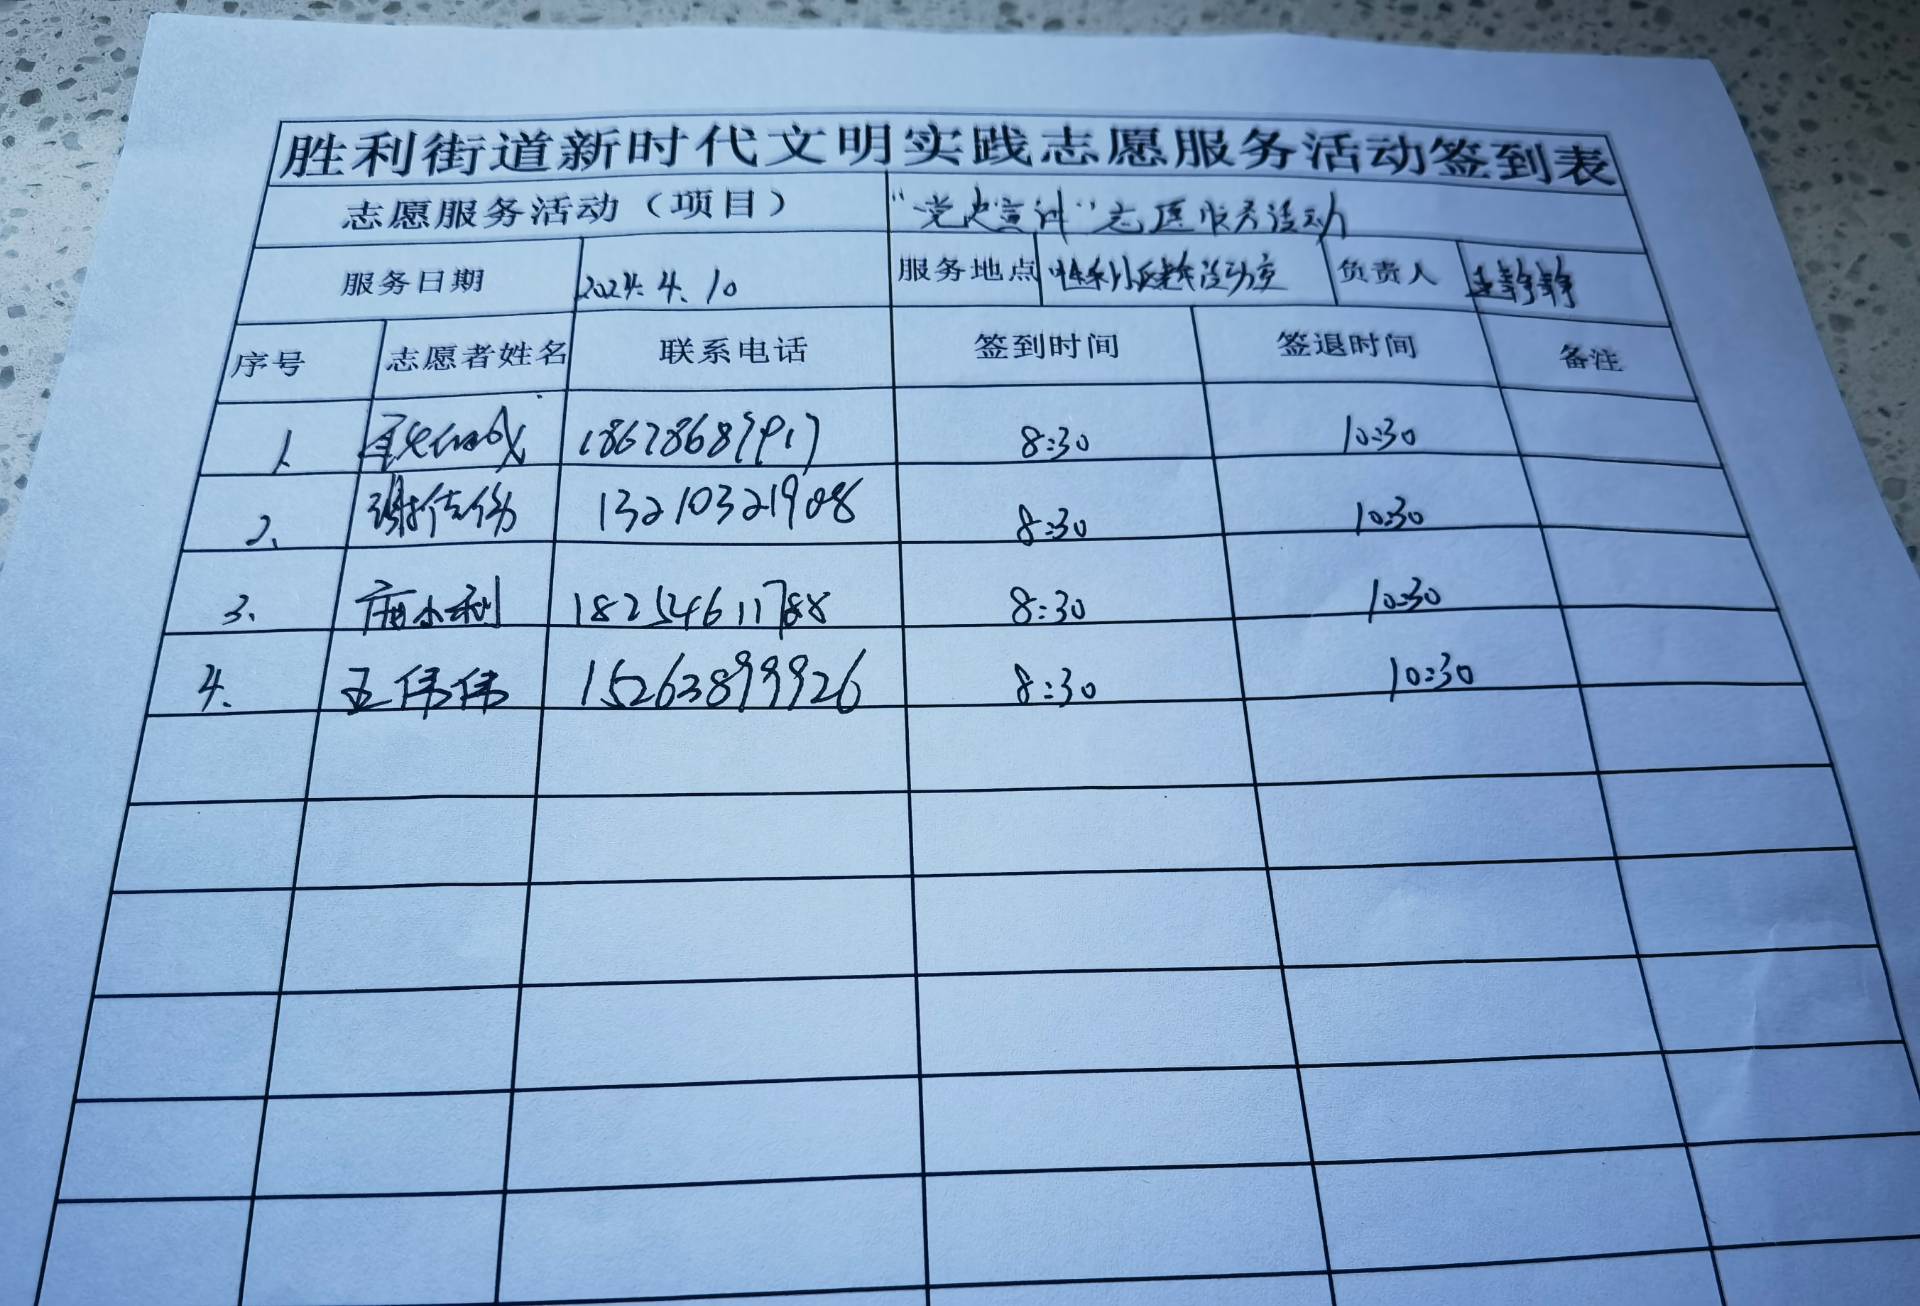 胜利街道新时代文明实践志愿服务活动签到表
志愿服务活动（项目） “党史宣讲”志愿服务活动
服务日期 2024.4.10 服务地点 活动室 负责人 王静静
序号 志愿者姓名 联系电话 签到时间 签退时间 备注
1、 8:30 10:30
2、 谢佳俊 13210321908 8:30 10:30
3、 18254611788 8:30 10:30
4、 王伟伟 15263899926 8:30 10:30